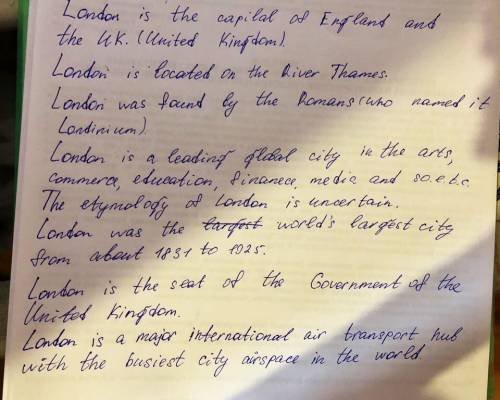 London is the capital of England and
the UK. (United Kingdom).
London is located on the River Thames.
London was found by the Romans (who named it
Londinium).
London is a leading global city in the arts,
commerce, education, finanece, media and so.e.t.c.
The etymology of London is uncertain.
London was the largest world's largest city
from about 1831 to 1925.
London is the seat of the Government of the
United Kingdom.
London is a major international air transport hub
with the busiest city airspace in the world.